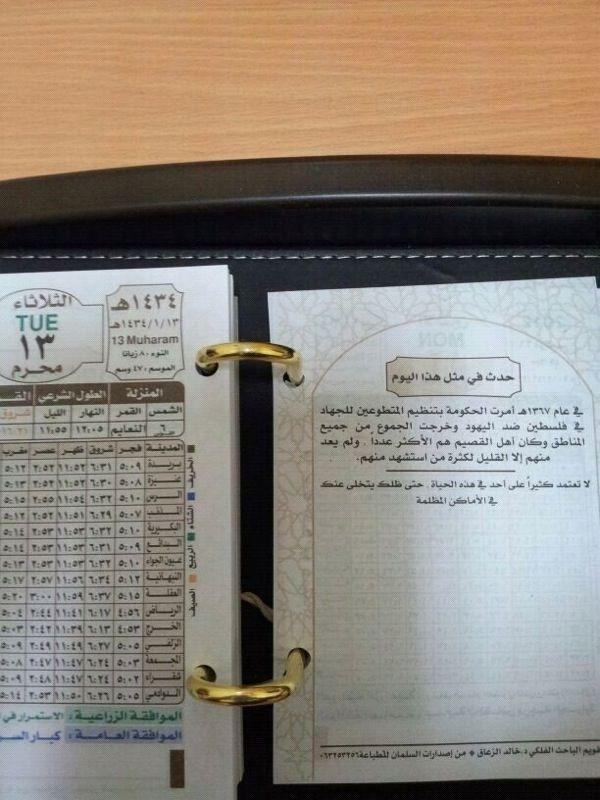 حدث في مثل هذا اليوم
في عام ١٣٦٧هـ أمرت الحكومة بتنظيم المتطوعين للجهاد
في فلسطين ضد اليهود وخرجت الجموع من جميع
المناطق وكان أهل القصيم هم الأكثر عدداً . ولم يعد
منهم إلا القليل لكثرة من استشهد منهم.
لا تعتمد كثيراً على أحد في هذه الحياة . حتى ظلك يتخلى عنك
في الأماكن المظلمة
تقويم الباحث الفلكي د.خالد الزعاق * من إصدارات السلمان للطباعة ٠٦٣٢٥٣٢٥٦
١٤٣٤هـ
١٤٣٤/١/١٣هـ
13 Muharam
النوء ٨٠ زبانا
الموسم ٤٧ وسم
الثلاثاء
TUE
١٣
محرم
المنزلة الطول الشرعي
الشمس القمر النهار الليل شروق
٦ النعايم ١٢:٠٥ ١١:٥٥
المدينة فجر شروق ظهر عصر مغرب
بريدة ٥:٠٩ ٦:٣١ ١١:٥٢ ٢:٥٢ ٥:١٢
عنيزة ٥:٠٨ ٦:٣٠ ١١:٥٢ ٢:٥٢ ٥:١٣
الرس ٥:١٠ ٦:٣٢ ١١:٥٤ ٢:٥٥ ٥:١٥
المذنب ٥:٠٧ ٦:٢٩ ١١:٥١ ٢:٥٢ ٥:١٢
البكيرية ٥:١٠ ٦:٣٢ ١١:٥٣ ٢:٥٣ ٥:١٤
البدائع ٥:٠٩ ٦:٣١ ١١:٥٣ ٢:٥٣ ٥:١٤
عيون الجواء ٥:١٠ ٦:٣٢ ١١:٥٣ ٢:٥٣ ٥:١٣
النبهانية ٥:١٢ ٦:٣٤ ١١:٥٦ ٢:٥٧ ٥:١٧
العقلة ٥:١٥ ٦:٣٧ ١١:٥٩ ٣:٠٠ ٥:٢٠
الرياض ٤:٥٦ ٦:١٧ ١١:٤١ ٢:٤٤ ٥:٠٤
الخرج ٤:٥٣ ٦:١٣ ١١:٣٩ ٢:٤٣ ٥:٠٣
الزلفي ٥:٠٥ ٦:٢٧ ١١:٤٩ ٢:٤٩ ٥:٠٩
المجمعة ٥:٠٣ ٦:٢٤ ١١:٤٧ ٢:٤٧ ٥:٠٨
شقراء ٥:٠٢ ٦:٢٤ ١١:٤٧ ٢:٤٨ ٥:٠٩
الدوادمي ٥:٠٥ ٦:٢٦ ١١:٥٠ ٢:٥٣ ٥:١٤
الخريف
الشتاء
الربيع
الصيف
الموافقة الزراعية : الاستمرار في
الموافقة العامة : كبار السن